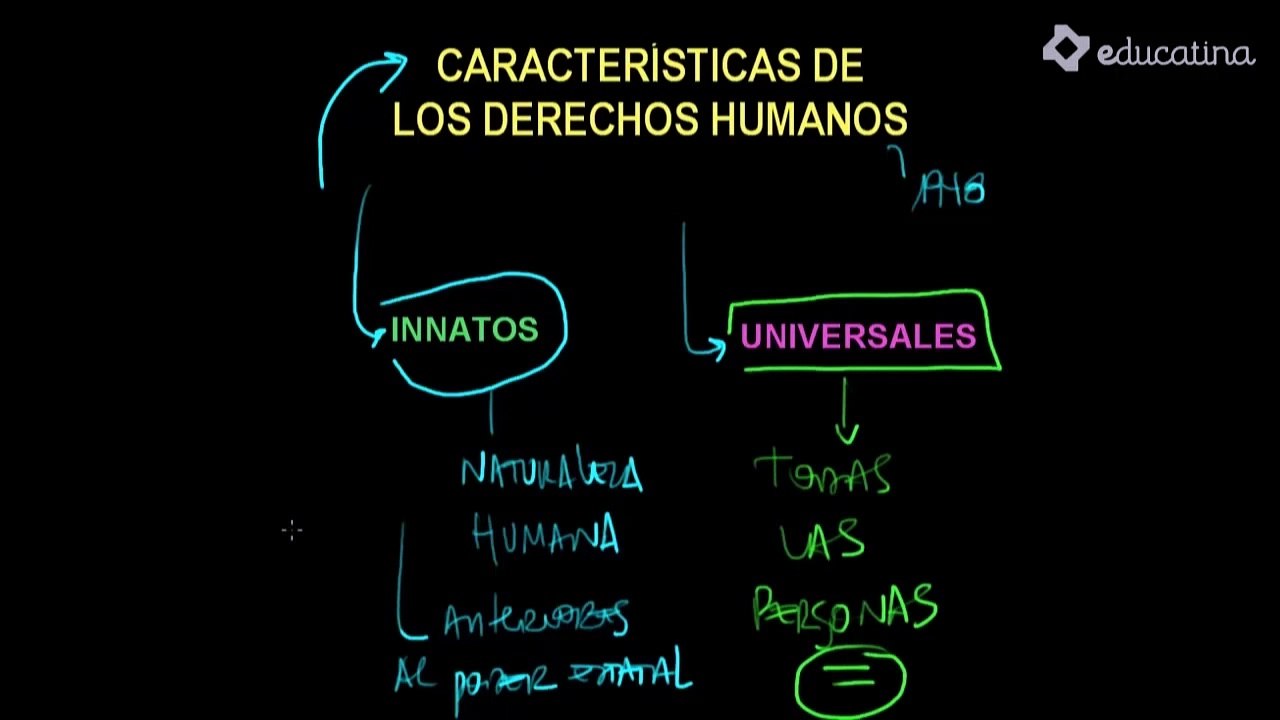 educatina
CARACTERÍSTICAS DE
LOS DERECHOS HUMANOS
1948
INNATOS
UNIVERSALES
NATURALEZA
HUMANA
ANTERIORES
AL PODER ESTATAL
TODAS
LAS
PERSONAS
=